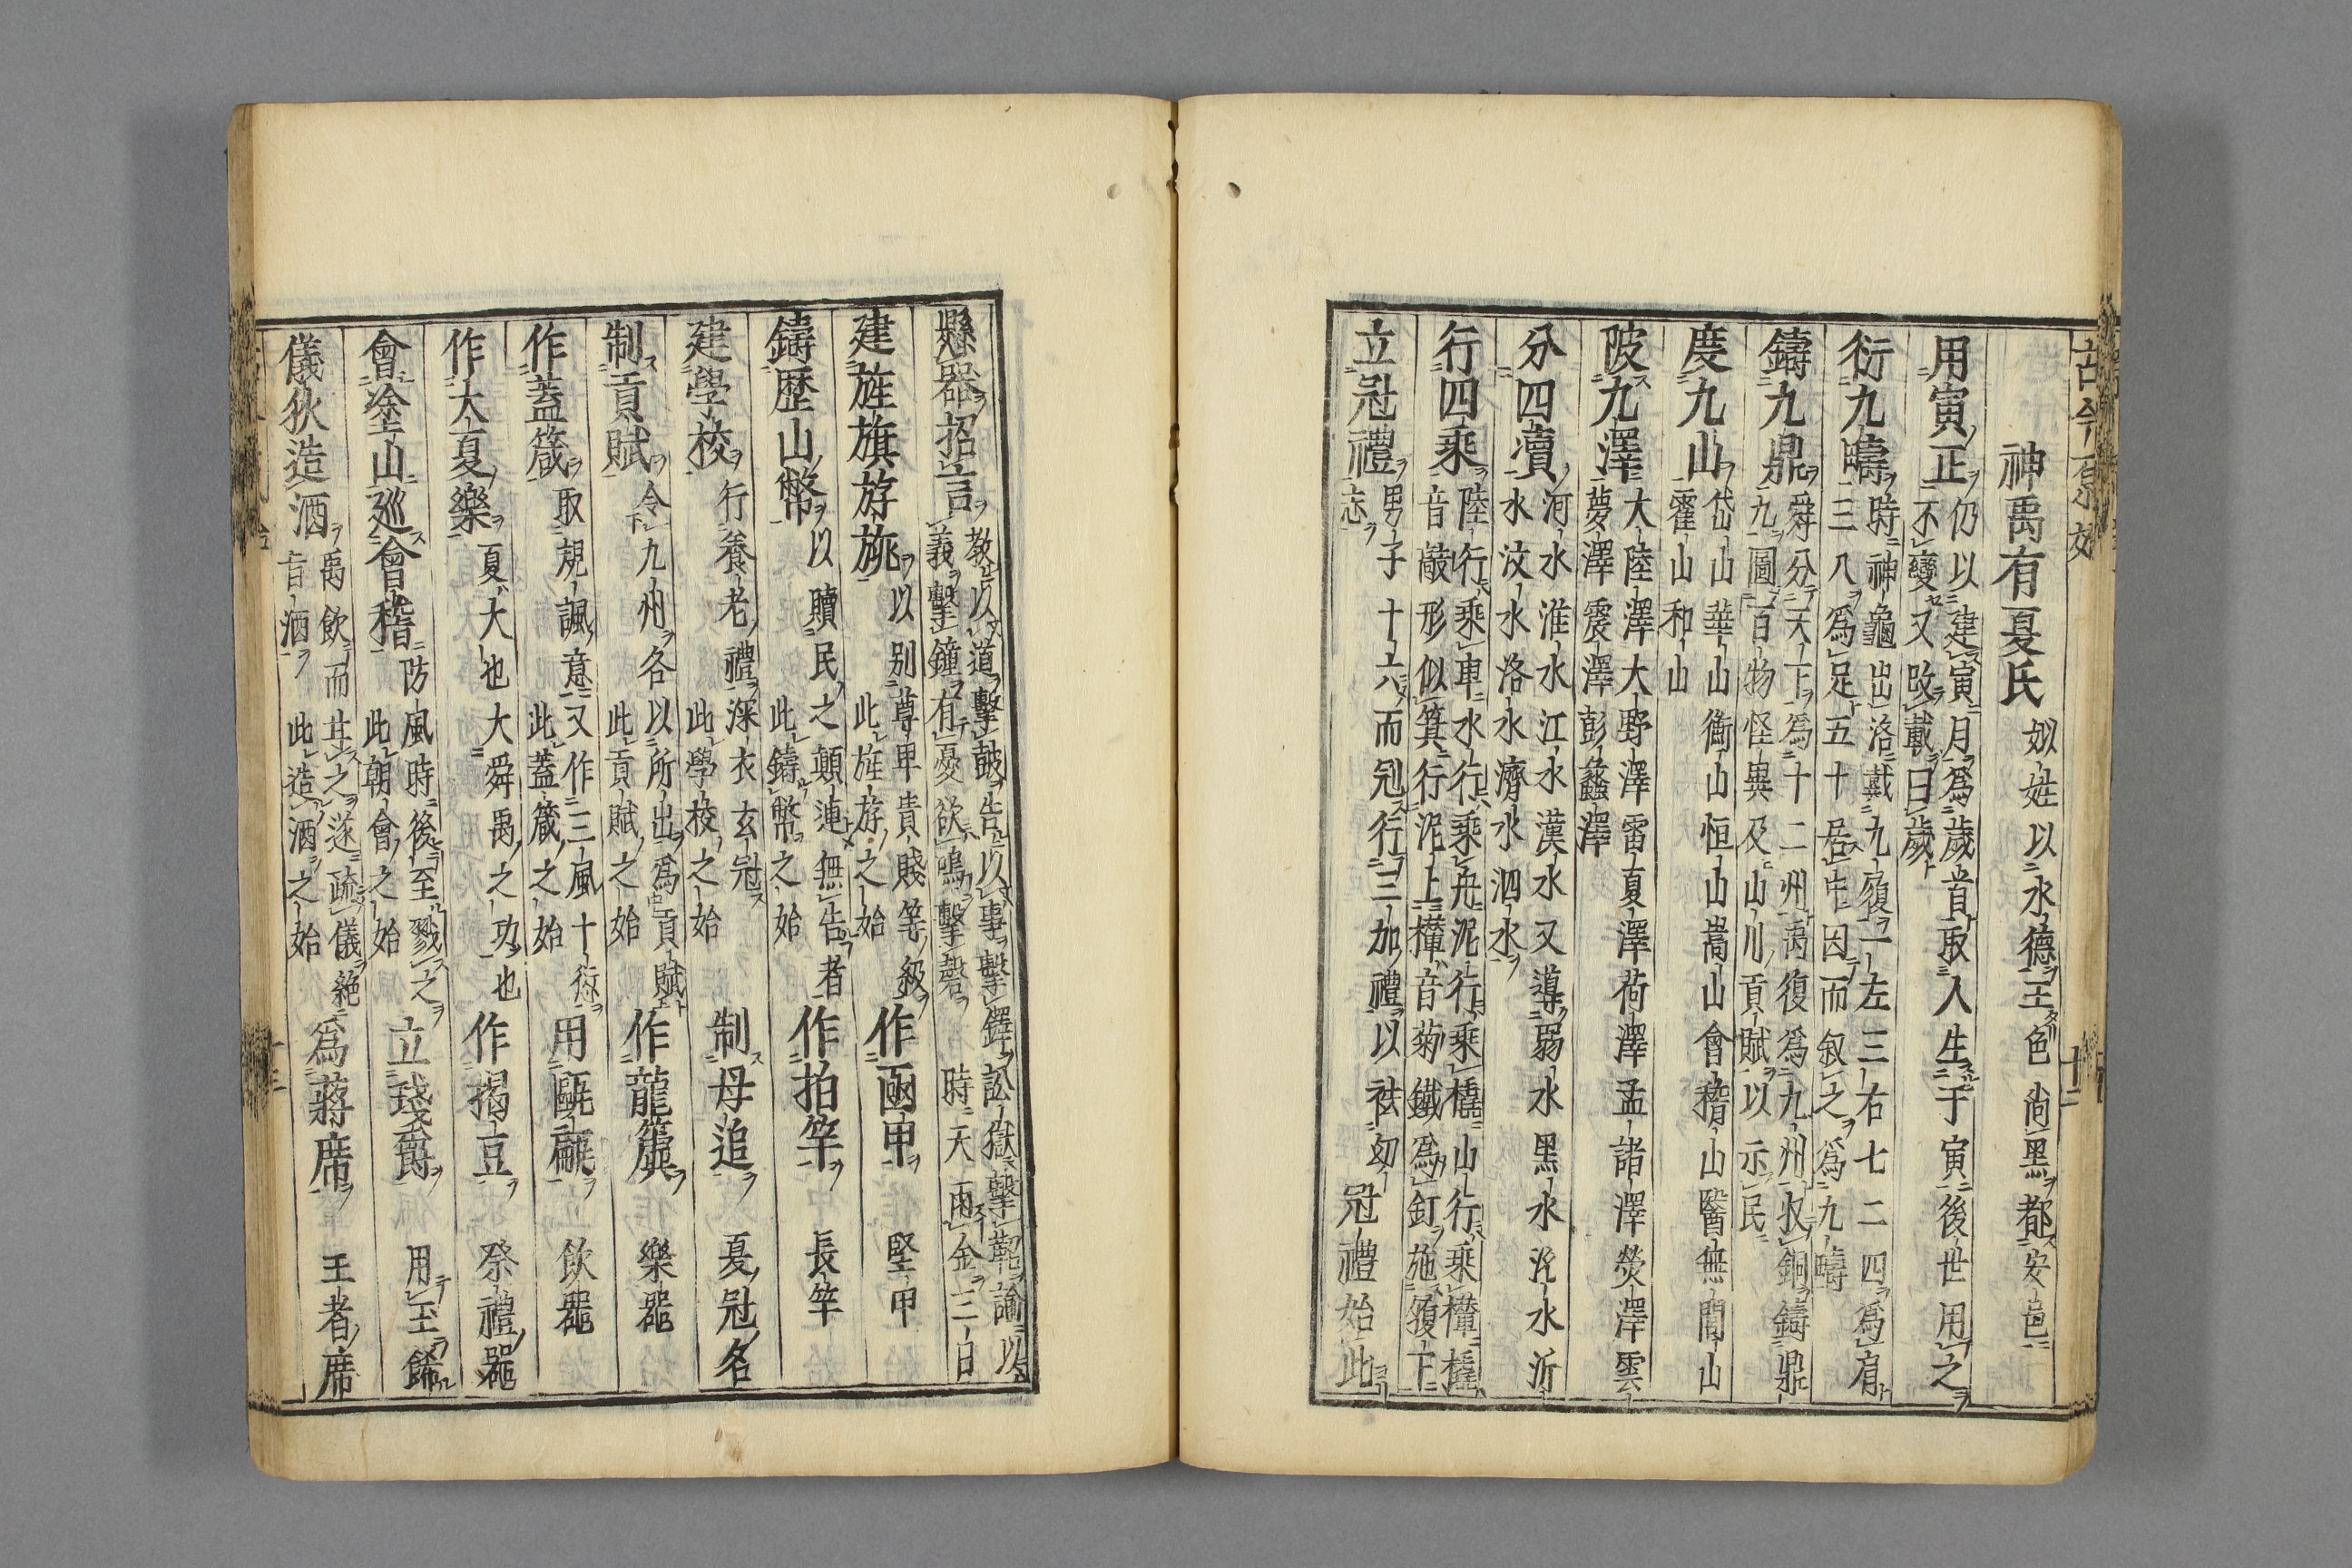 神禹有夏氏 姒姓以水德王色尚黑都安邑
用寅正 仍以建寅月爲歲首取人生于寅後世用之
不變又改載曰歲
衍九疇 時神龜出洛戴九履一左三右七二四爲肩
三八爲足五十居中因而叙之爲九疇
鑄九鼎 舜分天下爲十二州禹復爲九州收銅鑄鼎
九圖百物怪異及山川貢賦以示民
度九山 岱山華山衡山恒山嵩山會稽山醫無閭山
霍山和山
陂九澤 大陸澤大野澤雷夏澤荷澤孟諸澤熒澤雲
夢澤震澤彭蠡澤
分四瀆 河水淮水江水漢水又導弱水黑水沇水沂
水汶水洛水濟水泗水
行四乘 陸行乘車水行乘舟泥行乘橇山行乘欙橇
音敲形似箕行泥上欙音菊鐵爲釘施履下
立冠禮 男子十六而冠行三加禮以祛幼冠禮始此
志
懸器招言 教以道擊鼓告以事擊鐸訟獄擊鞀諭以
義擊鐘有憂欲鳴擊磬 時天雨金三日
建旌旗游旐 以别尊卑貴賤等級 作函甲 堅甲
此旌游之始
鑄歷山幣 以贖民之顛連無告者 作拍竿 長竿
此鑄幣之始
建學校 行養老禮深衣玄冠 制母追 夏冠名
此學校之始
制貢賦 令九州各以所出爲貢賦 作龍簴 樂器
此貢賦之始
作蓋箴 取規諷意又作三風十愆 用甌 飲器
此蓋箴之始
作大夏樂 夏大也大舜禹之功也 作揭豆 祭禮器
會塗山巡會稽 防風時後至戮之 立琖爵 用玉餙
此朝會之始
儀狄造酒 禹飲而甘之遂疏儀絕 爲蔣席 王者席
旨酒 此造酒之始
古今原始
十二